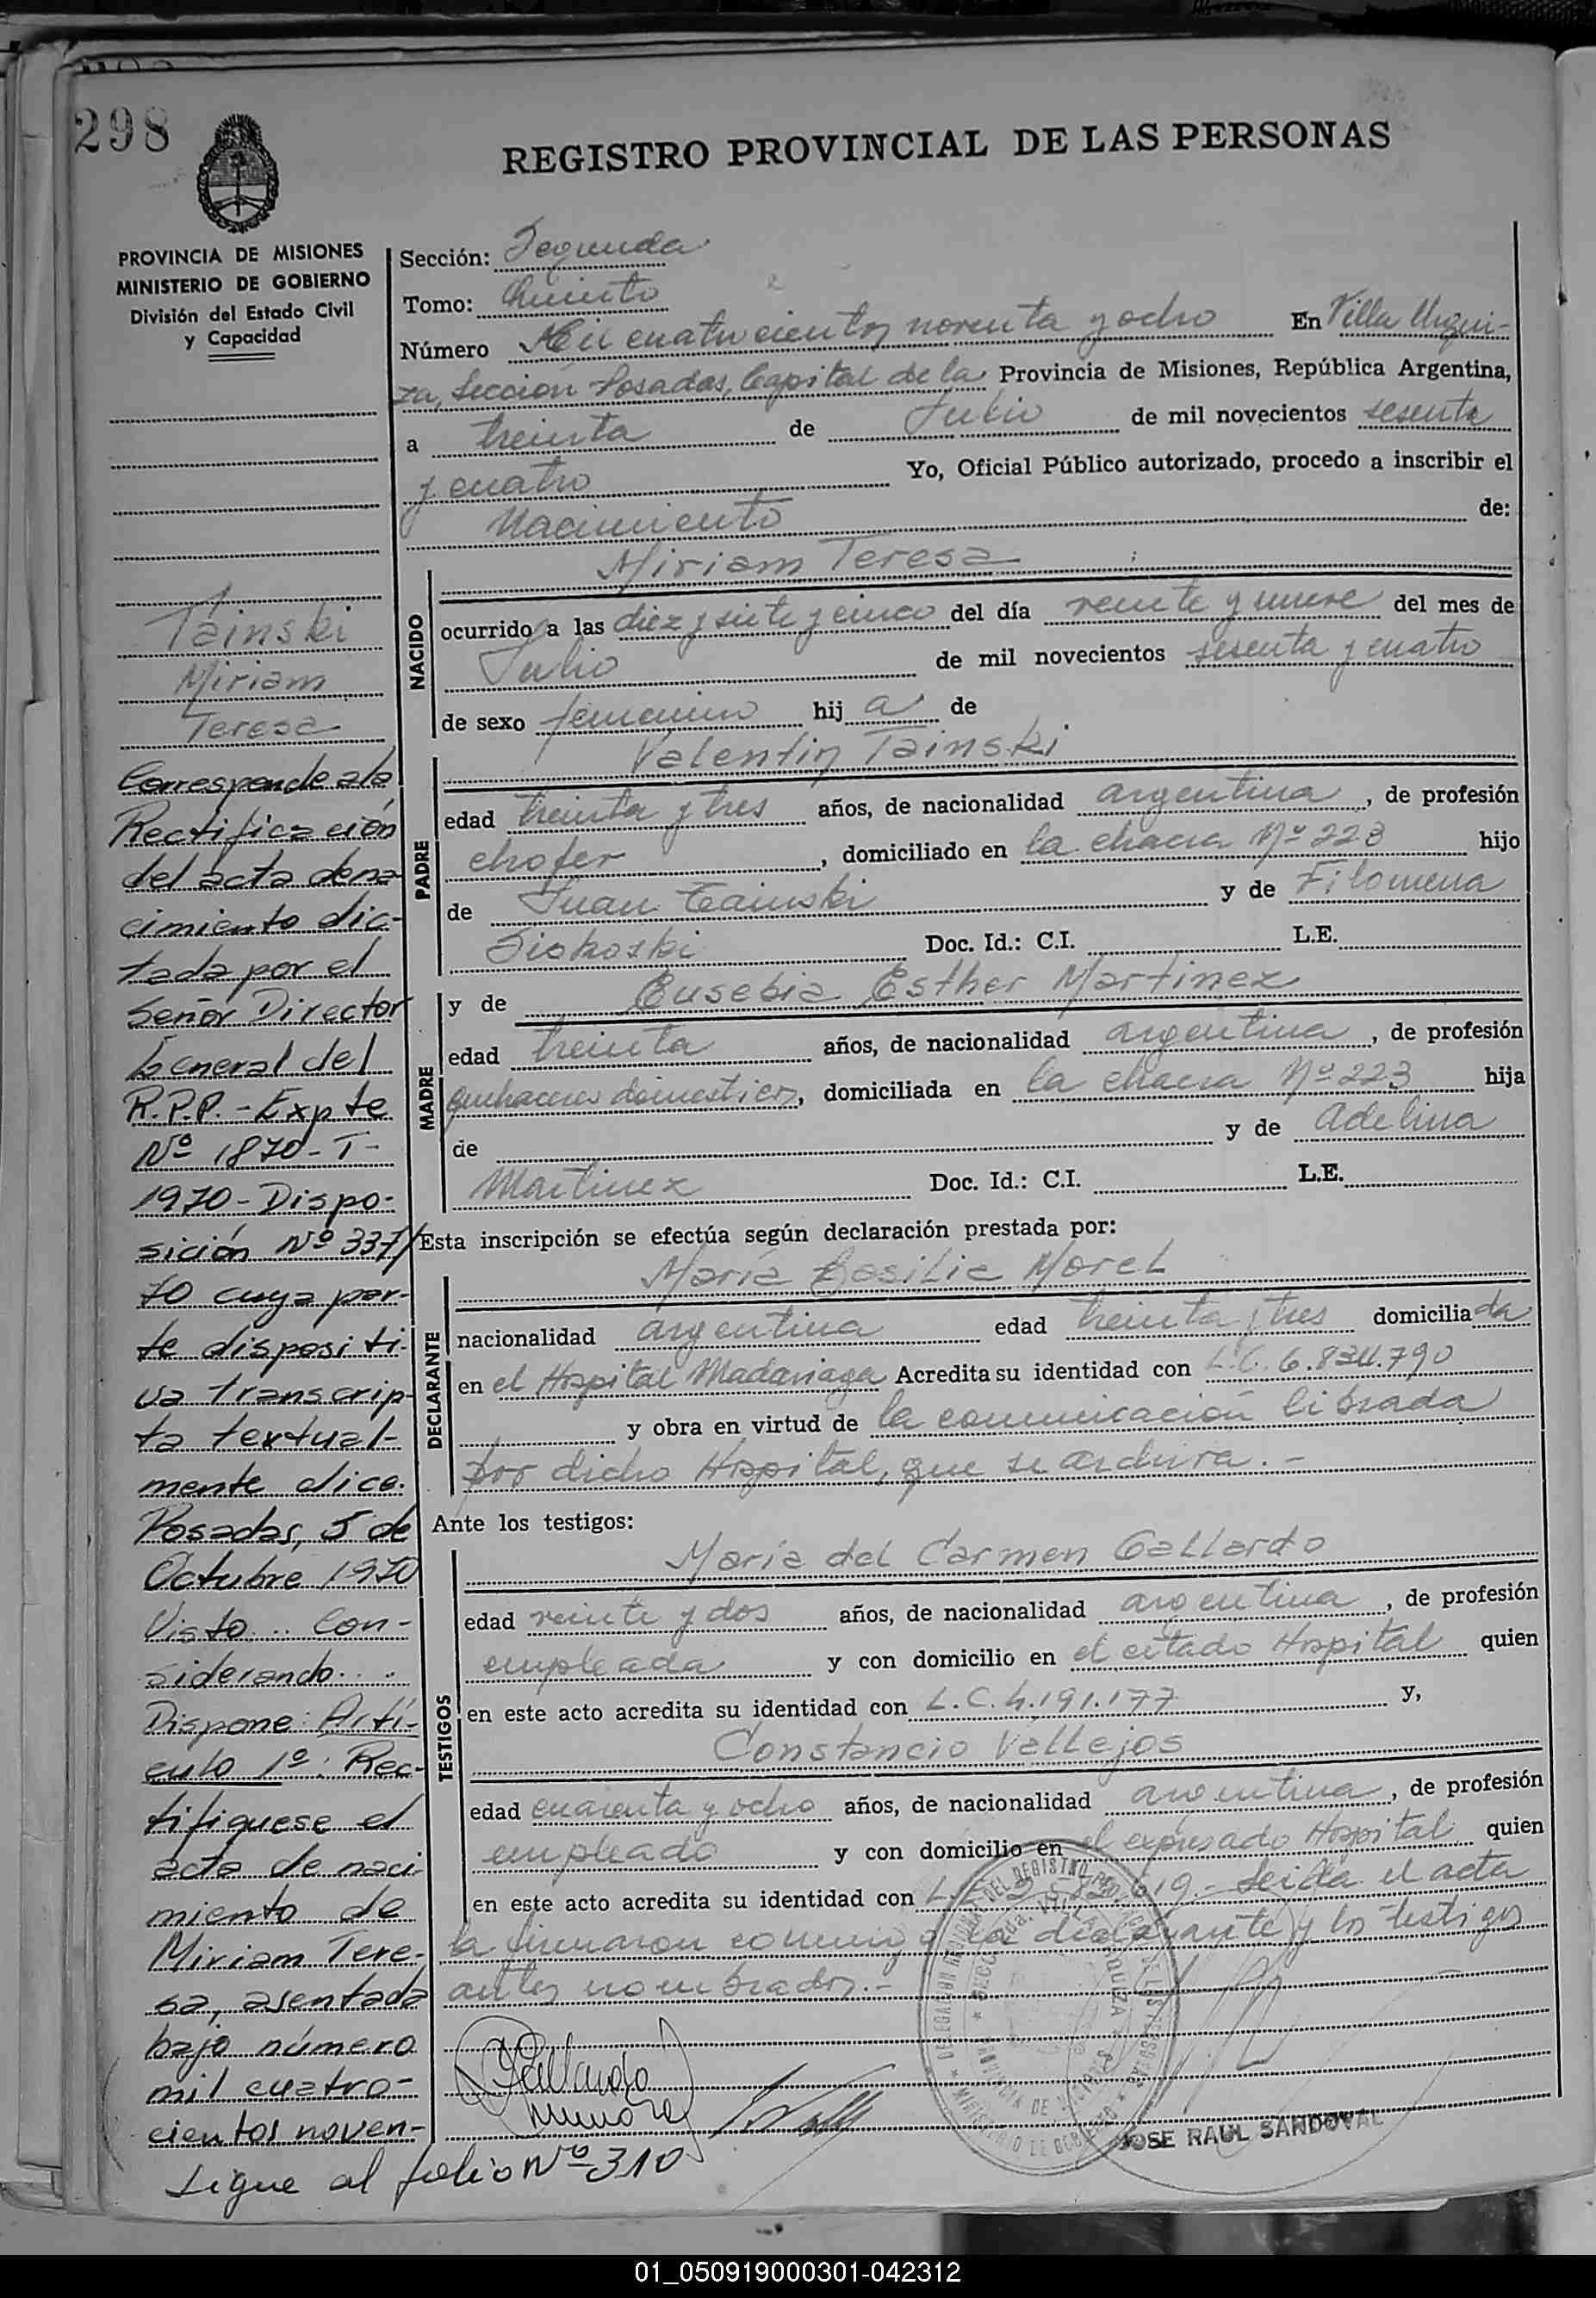 298
REGISTRO PROVINCIAL DE LAS PERSONAS
PROVINCIA DE MISIONES
MINISTERIO DE GOBIERNO
División del Estado Civil
y Capacidad
Tainski
Miriam
Teresa
Corresponde a la
Rectificación
del acta de na-
cimiento dic-
tada por el
Señor Director
General del
R.P.P. - Expte
Nº 1870 - T -
1970 - Dispo-
sición Nº 337/
70 cuya par-
te dispositi-
va transcrip-
ta textual-
mente dice:
Posadas, 5 de
Octubre 1970
Visto .. Con-
siderando...
Dispone: Artí-
culo 1º: Rec-
tifiquese el
acta de naci-
miento de
Miriam Tere-
sa, asentada
bajo número
mil cuatro-
cientos noven-
Sigue al folio Nº 310
Sección: Segunda
Tomo: Quinto
Número Mil cuatrocientos noventa y ocho En Villa Urqui-
za, Sección Posadas, Capital de la Provincia de Misiones, República Argentina,
a treinta de Julio de mil novecientos sesenta
y cuatro Yo, Oficial Público autorizado, procedo a inscribir el
Nacimiento de:
NACIDO
Miriam Teresa
ocurrido a las diez y siete y cinco del día veinte y nueve del mes de
Julio de mil novecientos sesenta y cuatro
de sexo femenino hija de
PADRE
Valentin Tainski
edad treinta y tres años, de nacionalidad argentina, de profesión
chofer, domiciliado en la chacra Nº 223 hijo
de Juan Tainski y de Filomena
Siokoski Doc. Id.: C.I. L.E.
MADRE
y de Eusebia Esther Martinez
edad treinta años, de nacionalidad argentina, de profesión
quehaceres domesticos, domiciliada en la chacra Nº 223 hija
de y de Adelina
Martinez Doc. Id.: C.I. L.E.
Esta inscripción se efectúa según declaración prestada por:
DECLARANTE
María Basilia Morel
nacionalidad argentina edad treinta y tres domiciliada
en el Hospital Madariaga Acredita su identidad con L.C. 6.834.790
y obra en virtud de la comunicación librada
por dicho Hospital, que se archiva. -
Ante los testigos:
TESTIGOS
María del Carmen Gallardo
edad veinte y dos años, de nacionalidad argentina, de profesión
empleada y con domicilio en el citado Hospital quien
en este acto acredita su identidad con L.C. 4.191.177 y,
Constancio Vallejos
edad cuarenta y ocho años, de nacionalidad argentina, de profesión
empleado y con domicilio en el expresado Hospital quien
en este acto acredita su identidad con 619.- Leída el acta
la firmaron conmigo la declarante y los testigos
antes nombrados.-
JOSE RAUL SANDOVAL
01_050919000301-042312